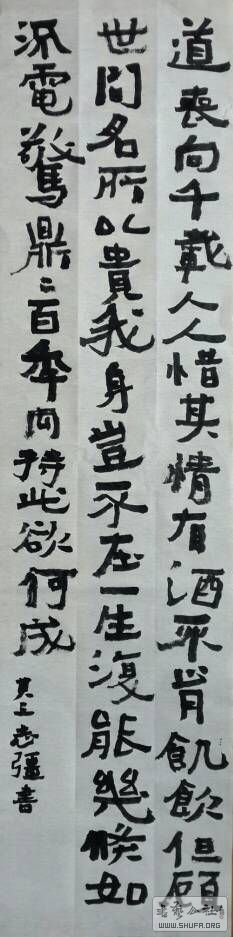 道喪向千載人人惜其情有酒不肯飢飲但顧
世間名所以貴我身豈不在一生復能幾倏如
流電驚鼎〻百年内持此欲何成
上志疆書
書藝公社
WWW.SHUFA.ORG